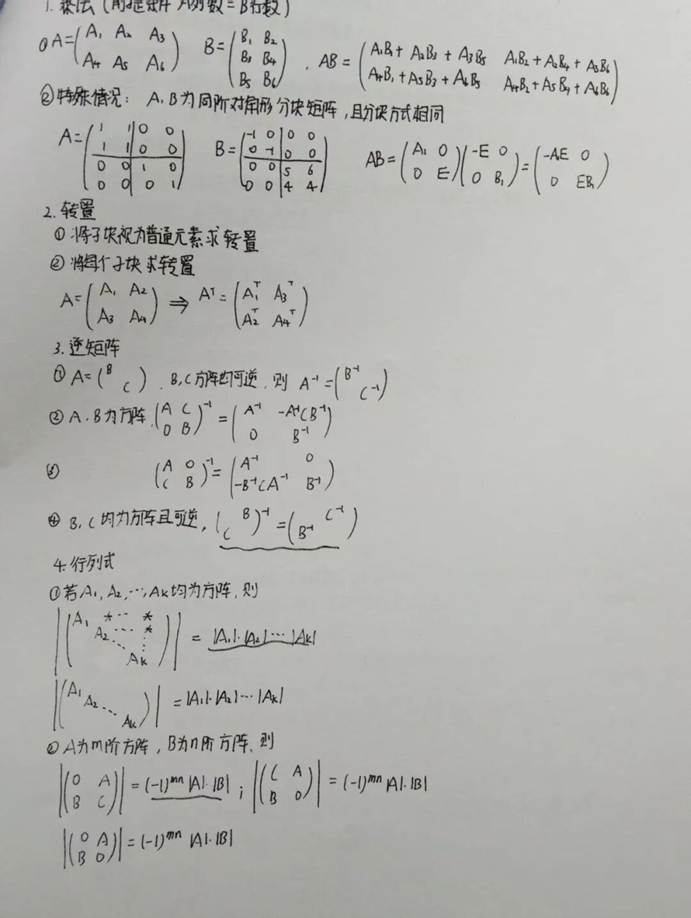 1. 乘法 (前提条件 A列数 = B行数)
① A = (A₁ A₂ A₃ ; A₄ A₅ A₆) B = (B₁ B₂ ; B₃ B₄ ; B₅ B₆) , AB = (A₁B₁ + A₂B₃ + A₃B₅ A₁B₂ + A₂B₄ + A₃B₆ ; A₄B₁ + A₅B₃ + A₆B₅ A₄B₂ + A₅B₄ + A₆B₆)
② 特殊情况: A, B 为同阶对角形分块矩阵, 且分块方式相同
A = (1 1 0 0 ; 1 1 0 0 ; 0 0 1 0 ; 0 0 0 1) B = (-1 0 0 0 ; 0 -1 0 0 ; 0 0 5 6 ; 0 0 4 4) AB = (A₁ 0 ; 0 E)(-E 0 ; 0 B₁) = (-AE 0 ; 0 EB₁)
2. 转置
① 将子块视为普通元素求转置
② 将每个子块求转置
A = (A₁ A₂ ; A₃ A₄) ⇒ Aᵀ = (A₁ᵀ A₃ᵀ ; A₂ᵀ A₄ᵀ)
3. 逆矩阵
① A = (B ; C) , B, C 方阵均可逆, 则 A⁻¹ = (B⁻¹ ; C⁻¹)
② A, B 为方阵, (A C ; 0 B)⁻¹ = (A⁻¹ -A⁻¹CB⁻¹ ; 0 B⁻¹)
③ (A 0 ; C B)⁻¹ = (A⁻¹ 0 ; -B⁻¹CA⁻¹ B⁻¹)
④ B, C 均为方阵且可逆, (B ; C)⁻¹ = (C⁻¹ ; B⁻¹)
4. 行列式
① 若 A₁, A₂, ⋯, Aₖ 均为方阵, 则
|(A₁ * ⋯ * ; A₂ ⋯ * ; ⋱ ⋮ ; Aₖ)| = |A₁|·|A₂| ⋯ |Aₖ|
|(A₁ ; A₂ ; ⋱ ; Aₖ)| = |A₁|·|A₂| ⋯ |Aₖ|
② A为m阶方阵, B为n阶方阵, 则
|(0 A ; B C)| = (-1)ᵐⁿ |A|·|B| ; |(C A ; B 0)| = (-1)ᵐⁿ |A|·|B|
|(0 A ; B 0)| = (-1)ᵐⁿ |A|·|B|